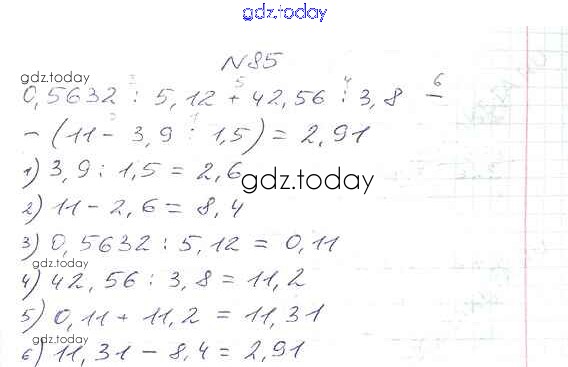 gdz.today
N85
gdz.today
0,5632 : 5,12 + 42,56 : 3,8 –
– (11 – 3,9 : 1,5) = 2,91
1) 3,9 : 1,5 = 2,6
gdz.today
2) 11 – 2,6 = 8,4
3) 0,5632 : 5,12 = 0,11
gdz.today
4) 42,56 : 3,8 = 11,2
5) 0,11 + 11,2 = 11,31
gdz.today
6) 11,31 – 8,4 = 2,91